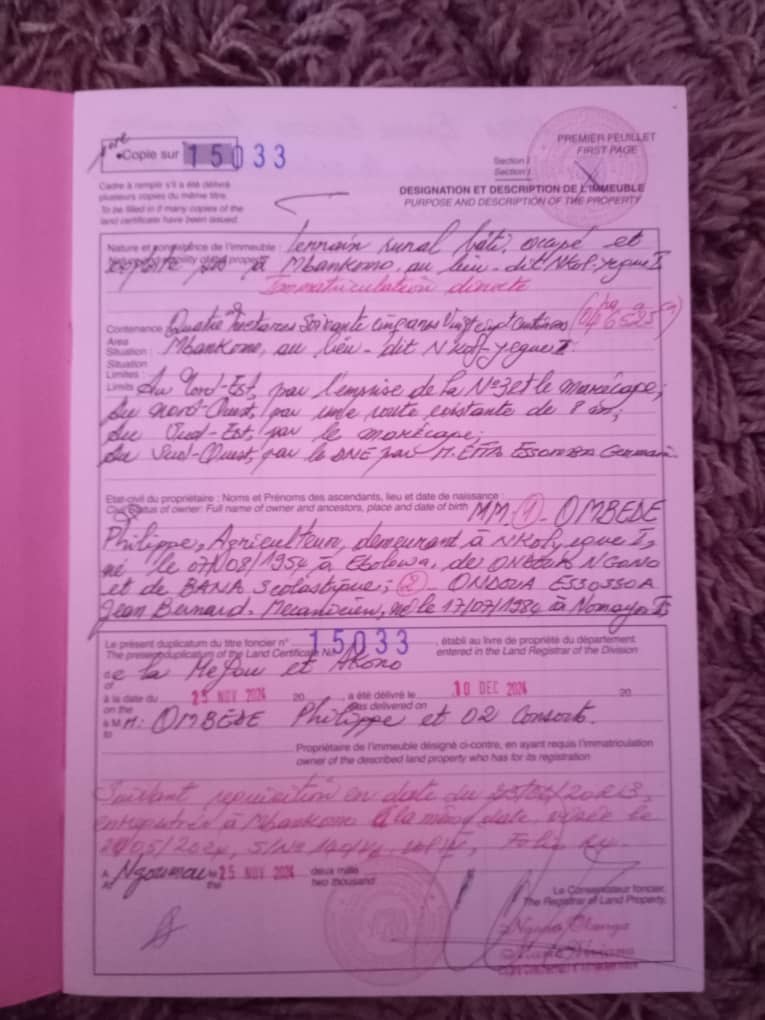 1ère
•Copie sur 15033
PREMIER FEUILLET
FIRST PAGE
Section I
Section I
Cadre à remplir s'il a été délivré
plusieurs copies du même titre.
To be filled in if many copies of the
land certificate have been issued.
DESIGNATION ET DESCRIPTION DE L'IMMEUBLE
PURPOSE AND DESCRIPTION OF THE PROPERTY
Nature et consistance de l'immeuble : Terrain rural bâti, occupé et
of the property
exploité sis à Mbankomo, au lieu-dit Nkol-yegue I
Immatriculation directe
Contenance Quatre hectares soixante cinq ares vingt cinq centiares (04ha 65a 25ca)
Area
Situation : Mbankomo, au lieu-dit Nkol-yegue I.
Situation
Limites :
Limits Au Nord-Est, par l'emprise de la N°3 et le marécage;
Au Nord-Ouest, par une route existante de 8 m;
Au Sud-Est, par le marécage;
Au Sud-Ouest, par le DNE par M. ETTA ESSOMBA Germain.
Etat-civil du propriétaire : Noms et Prénoms des ascendants, lieu et date de naissance :
Civil Status of owner: Full name of owner and ancestors, place and date of birth MM 1- OMBEDE
Philippe, Agriculteur, demeurant à Nkol-yegue I,
né le 07/08/1954 à Ebolowa, de NGONO
et de BANA Scolastique; 2- ONDOUA ESSOSSOA
Jean Bernard. Mecanicien, né le 17/07/1984 à Nomayos II
Le présent duplicatum du titre foncier n° 15033 , établi au livre de propriété du département
The present duplicatum of the Land Certificate No. entered in the Land Registrar of the Division
de la Mefou et Akono
of
à la date du 25 NOV 2024 20 , a été délivré le 10 DEC 2024 20
on the has delivered on
à M M. OMBEDE Philippe et 02 Consorts.
to
Propriétaire de l'immeuble désigné ci-contre, en ayant requis l'immatriculation
owner of the described land property who has for its registration
Suivant requisition en date du
à Mbankomo à la même date, visée le
/05/2024, Folio
A Ngoumou le 25 NOV 2024 deux mille
At the two thousand
Le Conservateur foncier,
The Registrar of Land Property,